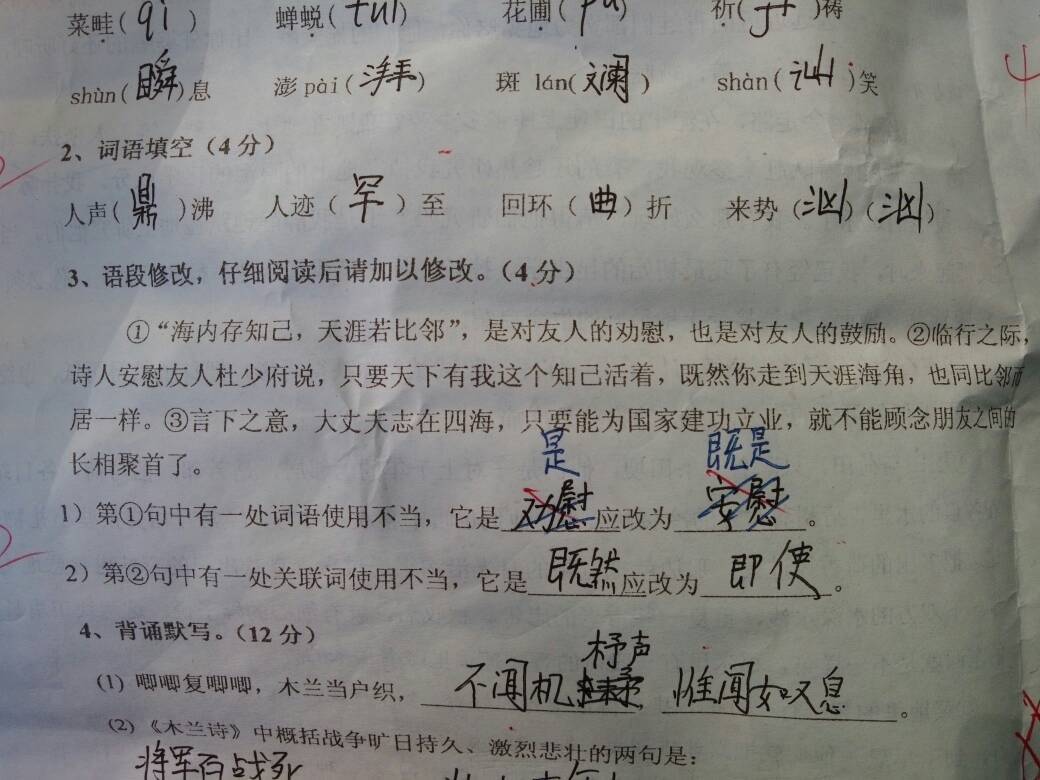 菜畦(qí) 蝉蜕(tuì) 花圃(pǔ) 祈()祷
shùn(瞬)息 澎pài(湃) 斑lán(斓) shàn(讪)笑
2、词语填空(4分)
人声(鼎)沸 人迹(罕)至 回环(曲)折 来势(汹)(汹)
3、语段修改，仔细阅读后请加以修改。(4分)
①“海内存知己，天涯若比邻”，是对友人的劝慰，也是对友人的鼓励。②临行之际，
诗人安慰友人杜少府说，只要天下有我这个知己活着，既然你走到天涯海角，也同比邻而
居一样。③言下之意，大丈夫志在四海，只要能为国家建功立业，就不能顾念朋友之间的
长相聚首了。
是 既是
1）第①句中有一处词语使用不当，它是劝慰应改为安慰。
2）第②句中有一处关联词使用不当，它是既然应改为即使。
4、背诵默写。(12分)
杼声
(1) 唧唧复唧唧，木兰当户织，不闻机 惟闻女叹息。
(2)《木兰诗》中概括战争旷日持久、激烈悲壮的两句是：
将军百战死